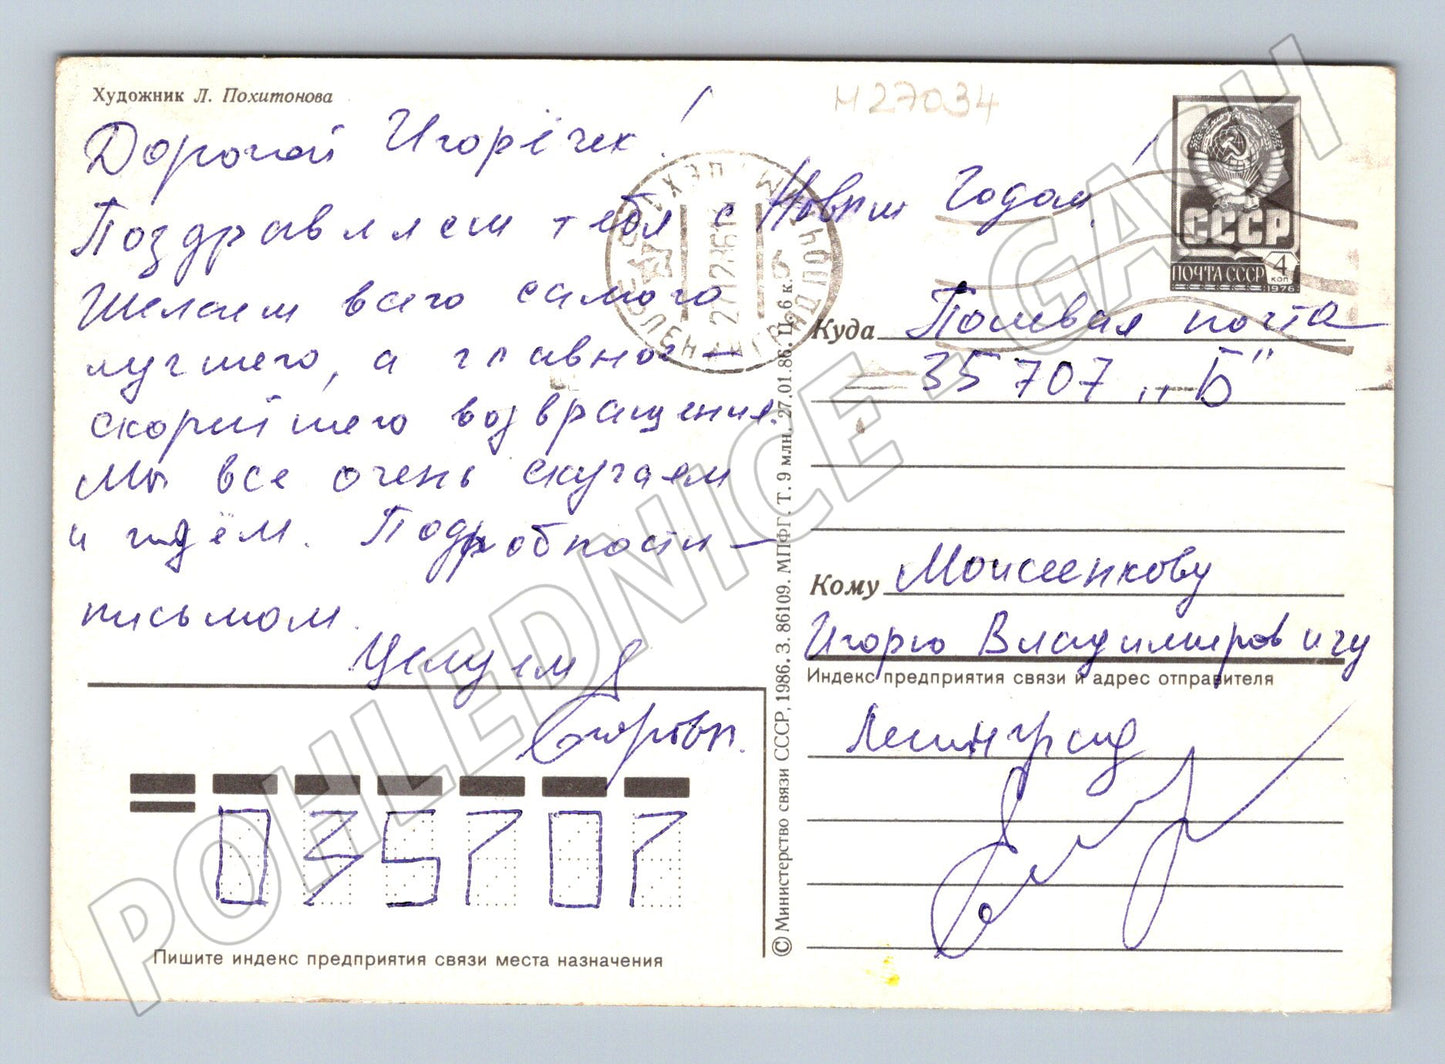 Художник Л. Похитонова
М27034
Дорогой Игорёчек!
Поздравляем тебя с Новым Годом!
Желаем всего самого
лучшего, а главное —
скорейшего возвращения.
Мы все очень скучаем
и ждём. Подробности —
письмом.
Целуем
Егоровы.
035707
Пишите индекс предприятия связи места назначения
© Министерство связи СССР, 1986. З. 86109. МПФГ. Т. 9 млн. 27.01.86. Ц. 6 к.
СССР
ПОЧТА СССР 4 коп
1976
271286
Куда Полевая почта
35707 „Б"
Кому Моисеенкову
Игорю Владимировичу
Индекс предприятия связи и адрес отправителя
Ленинград
POHLEDNICE - GASH